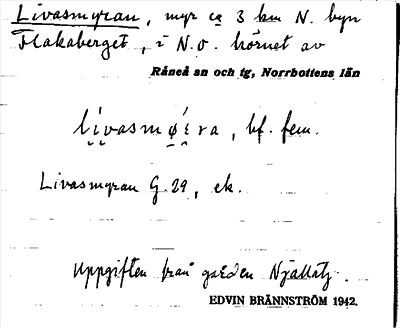 Livasmyran, myr ca 3 km N. byn
Flakaberget, i N.O. hörnet av
Råneå sn och tg, Norrbottens län
lívasmǿ́ra, bf. fem.
Livasmyran G. 29, ek.
Uppgiften från gården Njallatj.
EDVIN BRÄNNSTRÖM 1942.